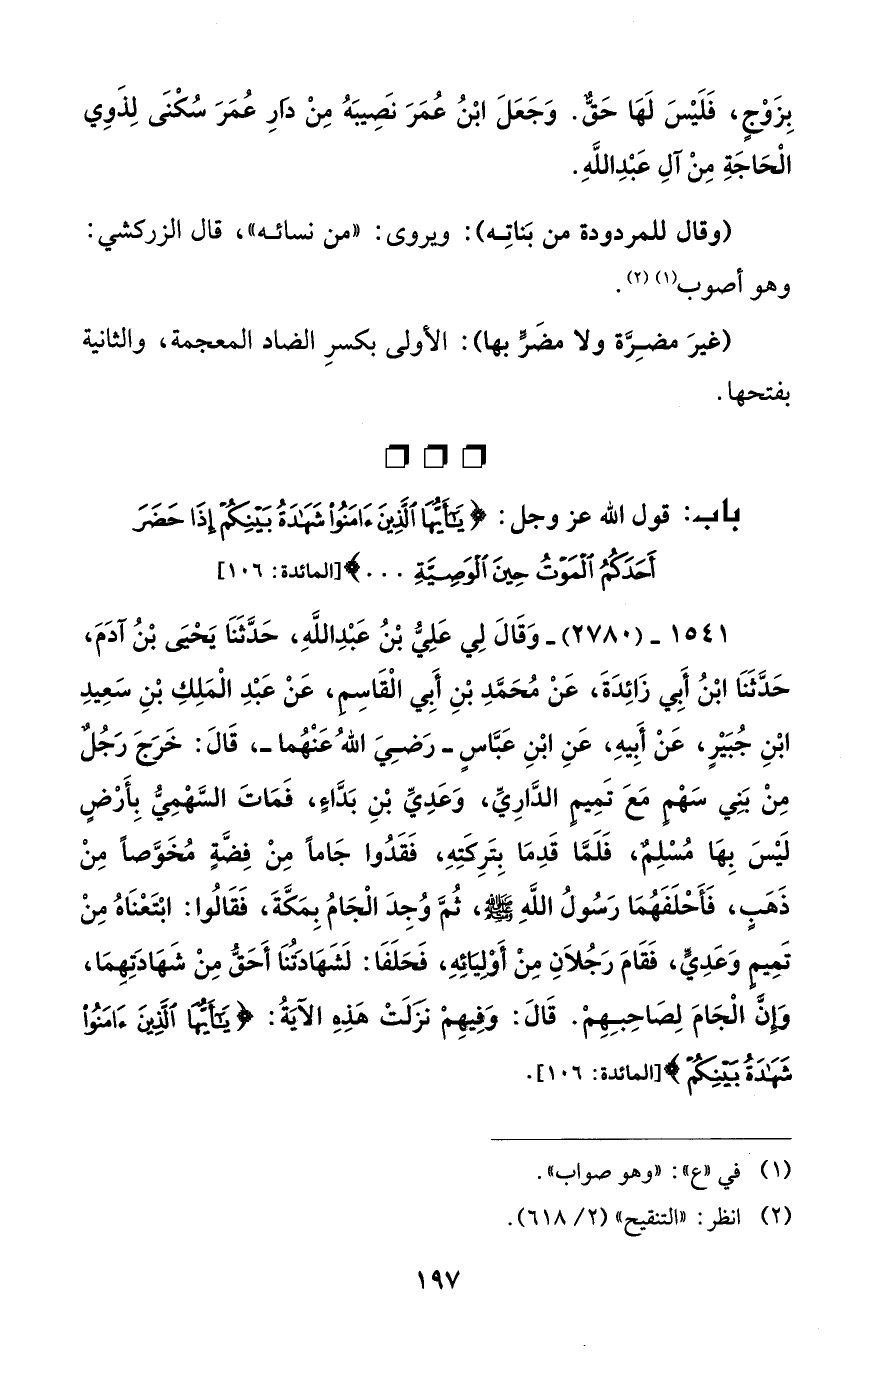 بِزَوْجٍ، فَلَيْسَ لَهَا حَقٌّ. وَجَعَلَ ابْنُ عُمَرَ نَصِيبَهُ مِنْ دَارِ عُمَرَ سُكْنَى لِذَوِي
الْحَاجَةِ مِنْ آلِ عَبْدِاللَّهِ.
(وقال للمردودة من بَناتِـه): ويروى: «من نسائـه»، قال الزركشي:
وهو أصوب(١) (٢).
(غيرَ مضـِرَّة ولا مضَرٍّ بها): الأولى بكسرِ الضاد المعجمة، والثانية
بفتحها.
❐ ❐ ❐
باب: قول الله عز وجل: ﴿يَٰٓأَيُّهَا ٱلَّذِينَ ءَامَنُوا۟ شَهَٰدَةُ بَيْنِكُمْ إِذَا حَضَرَ
أَحَدَكُمُ ٱلْمَوْتُ حِينَ ٱلْوَصِيَّةِ . . .﴾[المائدة: ١٠٦]
١٥٤١ ـ (٢٧٨٠) ـ وَقَالَ لِي عَلِيُّ بْنُ عَبْدِاللَّهِ، حَدَّثَنَا يَحْيَى بْنُ آدَمَ،
حَدَّثَنَا ابْنُ أَبِي زَائِدَةَ، عَنْ مُحَمَّدِ بْنِ أَبِي الْقَاسِمِ، عَنْ عَبْدِ الْمَلِكِ بْنِ سَعِيدِ
ابْنِ جُبَيْرٍ، عَنْ أَبِيهِ، عَنِ ابْنِ عَبَّاسٍ ـ رَضِيَ اللهُ عَنْهُما ـ، قَالَ: خَرَجَ رَجُلٌ
مِنْ بَنِي سَهْمٍ مَعَ تَمِيمٍ الدَّارِيِّ، وَعَدِيِّ بْنِ بَدَّاءٍ، فَمَاتَ السَّهْمِيُّ بِأَرْضٍ
لَيْسَ بِهَا مُسْلِمٌ، فَلَمَّا قَدِمَا بِتَرِكَتِهِ، فَقَدُوا جَاماً مِنْ فِضَّةٍ مُخَوَّصاً مِنْ
ذَهَبٍ، فَأَحْلَفَهُمَا رَسُولُ اللَّهِ ﷺ، ثُمَّ وُجِدَ الْجَامُ بِمَكَّةَ، فَقَالُوا: ابْتَعْنَاهُ مِنْ
تَمِيمٍ وَعَدِيٍّ، فَقَامَ رَجُلاَنِ مِنْ أَوْلِيَائِهِ، فَحَلَفَا: لَشَهَادَتُنَا أَحَقُّ مِنْ شَهَادَتِهِمَا،
وَإِنَّ الْجَامَ لِصَاحِبِهِمْ. قَالَ: وَفِيهِمْ نَزَلَتْ هَذِهِ الآيَةُ: ﴿يَٰٓأَيُّهَا ٱلَّذِينَ ءَامَنُوا۟
شَهَٰدَةُ بَيْنِكُمْ﴾[المائدة: ١٠٦].
(١) في «ع»: «وهو صواب».
(٢) انظر: «التنقيح» (٢/ ٦١٨).
١٩٧